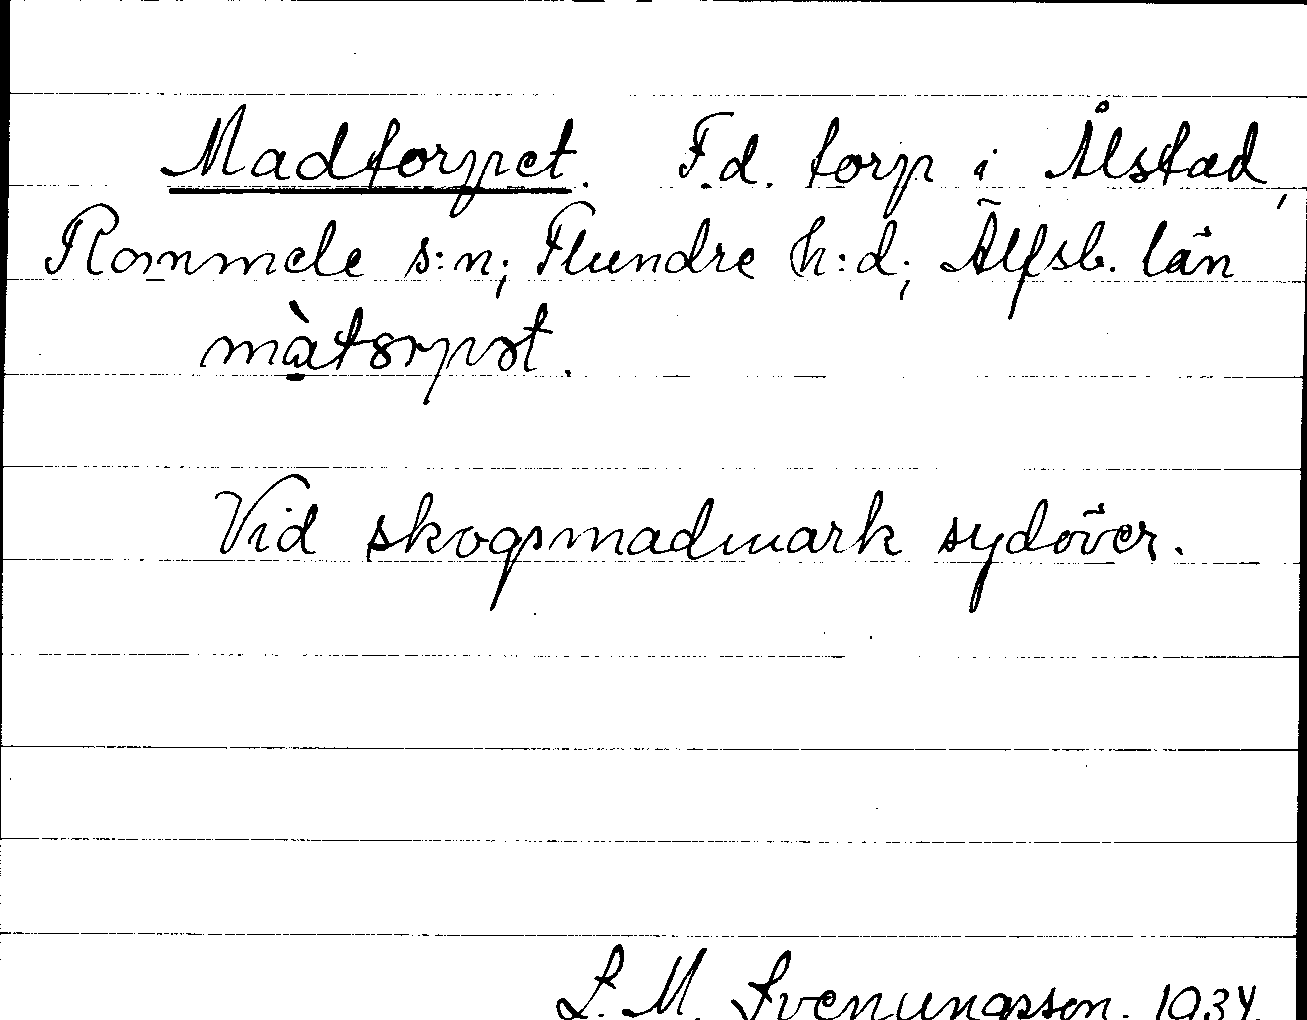 Madtorpet. F.d. torp i Ålstad,
Rommele s:n; Flundre h:d; Älfsb. län
màtorpət.
Vid skogsmadmark sydöver.
L. M. Svenungsson. 1934.